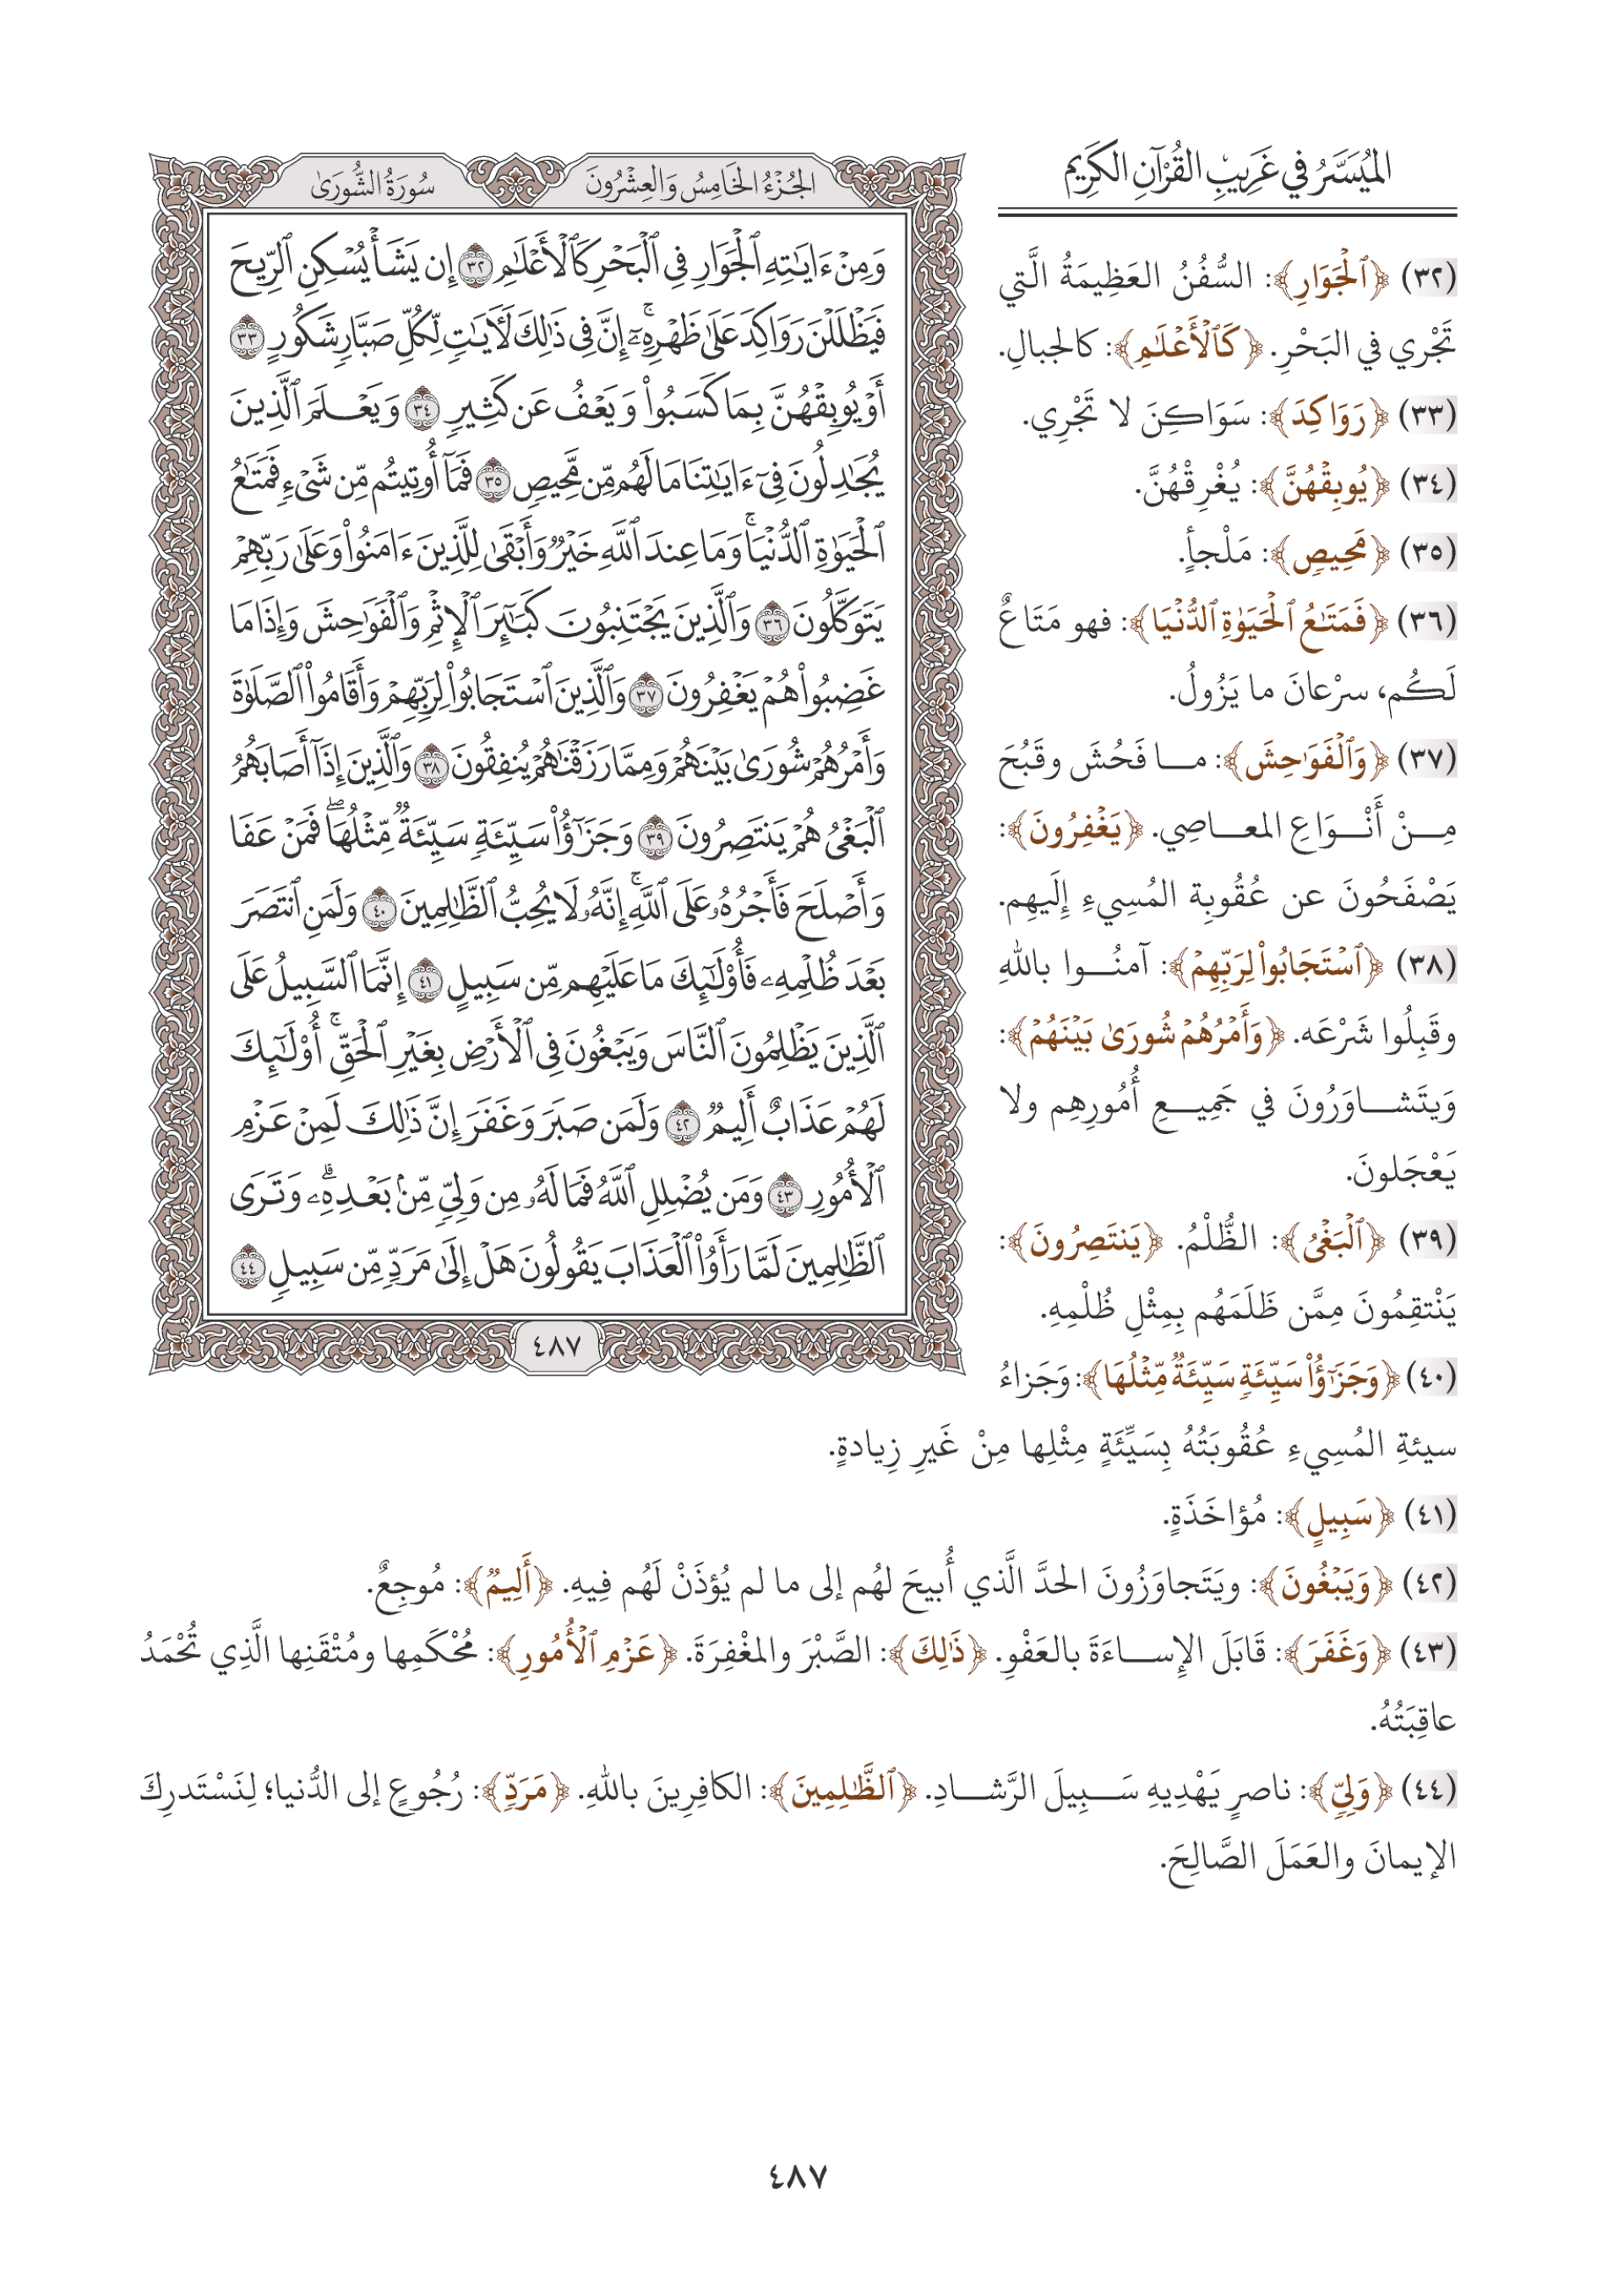 المُيَسَّرُ في غَرِيبِ القُرْآنِ الكَرِيمِ
الجُزْءُ الخَامِسُ وَالعِشْرُونَ
سُورَةُ الشُّورَىٰ
وَمِنْ ءَايَٰتِهِ ٱلْجَوَارِ فِى ٱلْبَحْرِ كَٱلْأَعْلَٰمِ ٣٢ إِن يَشَأْ يُسْكِنِ ٱلرِّيحَ
فَيَظْلَلْنَ رَوَاكِدَ عَلَىٰ ظَهْرِهِۦٓ ۚ إِنَّ فِى ذَٰلِكَ لَءَايَٰتٍ لِّكُلِّ صَبَّارٍ شَكُورٍ ٣٣
أَوْ يُوبِقْهُنَّ بِمَا كَسَبُوا۟ وَيَعْفُ عَن كَثِيرٍ ٣٤ وَيَعْلَمَ ٱلَّذِينَ
يُجَٰدِلُونَ فِىٓ ءَايَٰتِنَا مَا لَهُم مِّن مَّحِيصٍ ٣٥ فَمَآ أُوتِيتُم مِّن شَىْءٍ فَمَتَٰعُ
ٱلْحَيَوٰةِ ٱلدُّنْيَا ۚ وَمَا عِندَ ٱللَّهِ خَيْرٌ وَأَبْقَىٰ لِلَّذِينَ ءَامَنُوا۟ وَعَلَىٰ رَبِّهِمْ
يَتَوَكَّلُونَ ٣٦ وَٱلَّذِينَ يَجْتَنِبُونَ كَبَٰٓئِرَ ٱلْإِثْمِ وَٱلْفَوَٰحِشَ وَإِذَا مَا
غَضِبُوا۟ هُمْ يَغْفِرُونَ ٣٧ وَٱلَّذِينَ ٱسْتَجَابُوا۟ لِرَبِّهِمْ وَأَقَامُوا۟ ٱلصَّلَوٰةَ
وَأَمْرُهُمْ شُورَىٰ بَيْنَهُمْ وَمِمَّا رَزَقْنَٰهُمْ يُنفِقُونَ ٣٨ وَٱلَّذِينَ إِذَآ أَصَابَهُمُ
ٱلْبَغْىُ هُمْ يَنتَصِرُونَ ٣٩ وَجَزَٰٓؤُا۟ سَيِّئَةٍ سَيِّئَةٌ مِّثْلُهَا ۖ فَمَنْ عَفَا
وَأَصْلَحَ فَأَجْرُهُۥ عَلَى ٱللَّهِ ۚ إِنَّهُۥ لَا يُحِبُّ ٱلظَّٰلِمِينَ ٤٠ وَلَمَنِ ٱنتَصَرَ
بَعْدَ ظُلْمِهِۦ فَأُو۟لَٰٓئِكَ مَا عَلَيْهِم مِّن سَبِيلٍ ٤١ إِنَّمَا ٱلسَّبِيلُ عَلَى
ٱلَّذِينَ يَظْلِمُونَ ٱلنَّاسَ وَيَبْغُونَ فِى ٱلْأَرْضِ بِغَيْرِ ٱلْحَقِّ ۚ أُو۟لَٰٓئِكَ
لَهُمْ عَذَابٌ أَلِيمٌ ٤٢ وَلَمَن صَبَرَ وَغَفَرَ إِنَّ ذَٰلِكَ لَمِنْ عَزْمِ
ٱلْأُمُورِ ٤٣ وَمَن يُضْلِلِ ٱللَّهُ فَمَا لَهُۥ مِن وَلِىٍّ مِّنۢ بَعْدِهِۦ ۗ وَتَرَى
ٱلظَّٰلِمِينَ لَمَّا رَأَوُا۟ ٱلْعَذَابَ يَقُولُونَ هَلْ إِلَىٰ مَرَدٍّ مِّن سَبِيلٍ ٤٤
٤٨٧
(٣٢) ﴿ٱلْجَوَارِ﴾: السُّفُنُ العَظِيمَةُ الَّتِي
تَجْرِي في البَحْرِ. ﴿كَٱلْأَعْلَٰمِ﴾: كالجبالِ.
(٣٣) ﴿رَوَاكِدَ﴾: سَوَاكِنَ لا تَجْرِي.
(٣٤) ﴿يُوبِقْهُنَّ﴾: يُغْرِقْهُنَّ.
(٣٥) ﴿مَحِيصٍ﴾: مَلْجأٍ.
(٣٦) ﴿فَمَتَٰعُ ٱلْحَيَوٰةِ ٱلدُّنْيَا﴾: فهو مَتَاعٌ
لَكُم، سرْعانَ ما يَزُولُ.
(٣٧) ﴿وَٱلْفَوَٰحِشَ﴾: ما فَحُشَ وقَبُحَ
مِنْ أَنْوَاعِ المعاصِي. ﴿يَغْفِرُونَ﴾:
يَصْفَحُونَ عن عُقُوبِة المُسِيءِ إِلَيهِم.
(٣٨) ﴿ٱسْتَجَابُوا۟ لِرَبِّهِمْ﴾: آمنُوا باللهِ
وقَبِلُوا شَرْعَه. ﴿وَأَمْرُهُمْ شُورَىٰ بَيْنَهُمْ﴾:
وَيتَشاوَرُونَ في جَمِيعِ أُمُورِهِم ولا
يَعْجَلونَ.
(٣٩) ﴿ٱلْبَغْىُ﴾: الظُّلْمُ. ﴿يَنتَصِرُونَ﴾:
يَنْتقِمُونَ مِمَّن ظَلَمَهُم بِمِثْلِ ظُلْمِهِ.
(٤٠) ﴿وَجَزَٰٓؤُا۟ سَيِّئَةٍ سَيِّئَةٌ مِّثْلُهَا﴾: وَجَزاءُ
سيئةِ المُسِيءِ عُقُوبَتُهُ بِسَيِّئَةٍ مِثْلِها مِنْ غَيرِ زِيادةٍ.
(٤١) ﴿سَبِيلٍ﴾: مُؤاخَذَةٍ.
(٤٢) ﴿وَيَبْغُونَ﴾: ويَتَجاوَزُونَ الحدَّ الَّذي أُبيحَ لهُم إلى ما لم يُؤذَنْ لَهُم فِيهِ. ﴿أَلِيمٌ﴾: مُوجِعٌ.
(٤٣) ﴿وَغَفَرَ﴾: قَابَلَ الإساءَةَ بالعَفْوِ. ﴿ذَٰلِكَ﴾: الصَّبْرَ والمغْفِرَةَ. ﴿عَزْمِ ٱلْأُمُورِ﴾: مُحْكَمِها ومُتْقَنِها الَّذِي تُحْمَدُ
عاقِبَتُهُ.
(٤٤) ﴿وَلِىٍّ﴾: ناصرٍ يَهْدِيهِ سَبِيلَ الرَّشادِ. ﴿ٱلظَّٰلِمِينَ﴾: الكافِرِينَ باللهِ. ﴿مَرَدٍّ﴾: رُجُوعٍ إلى الدُّنيا؛ لِنَسْتَدرِكَ
الإيمانَ والعَمَلَ الصَّالِحَ.
٤٨٧